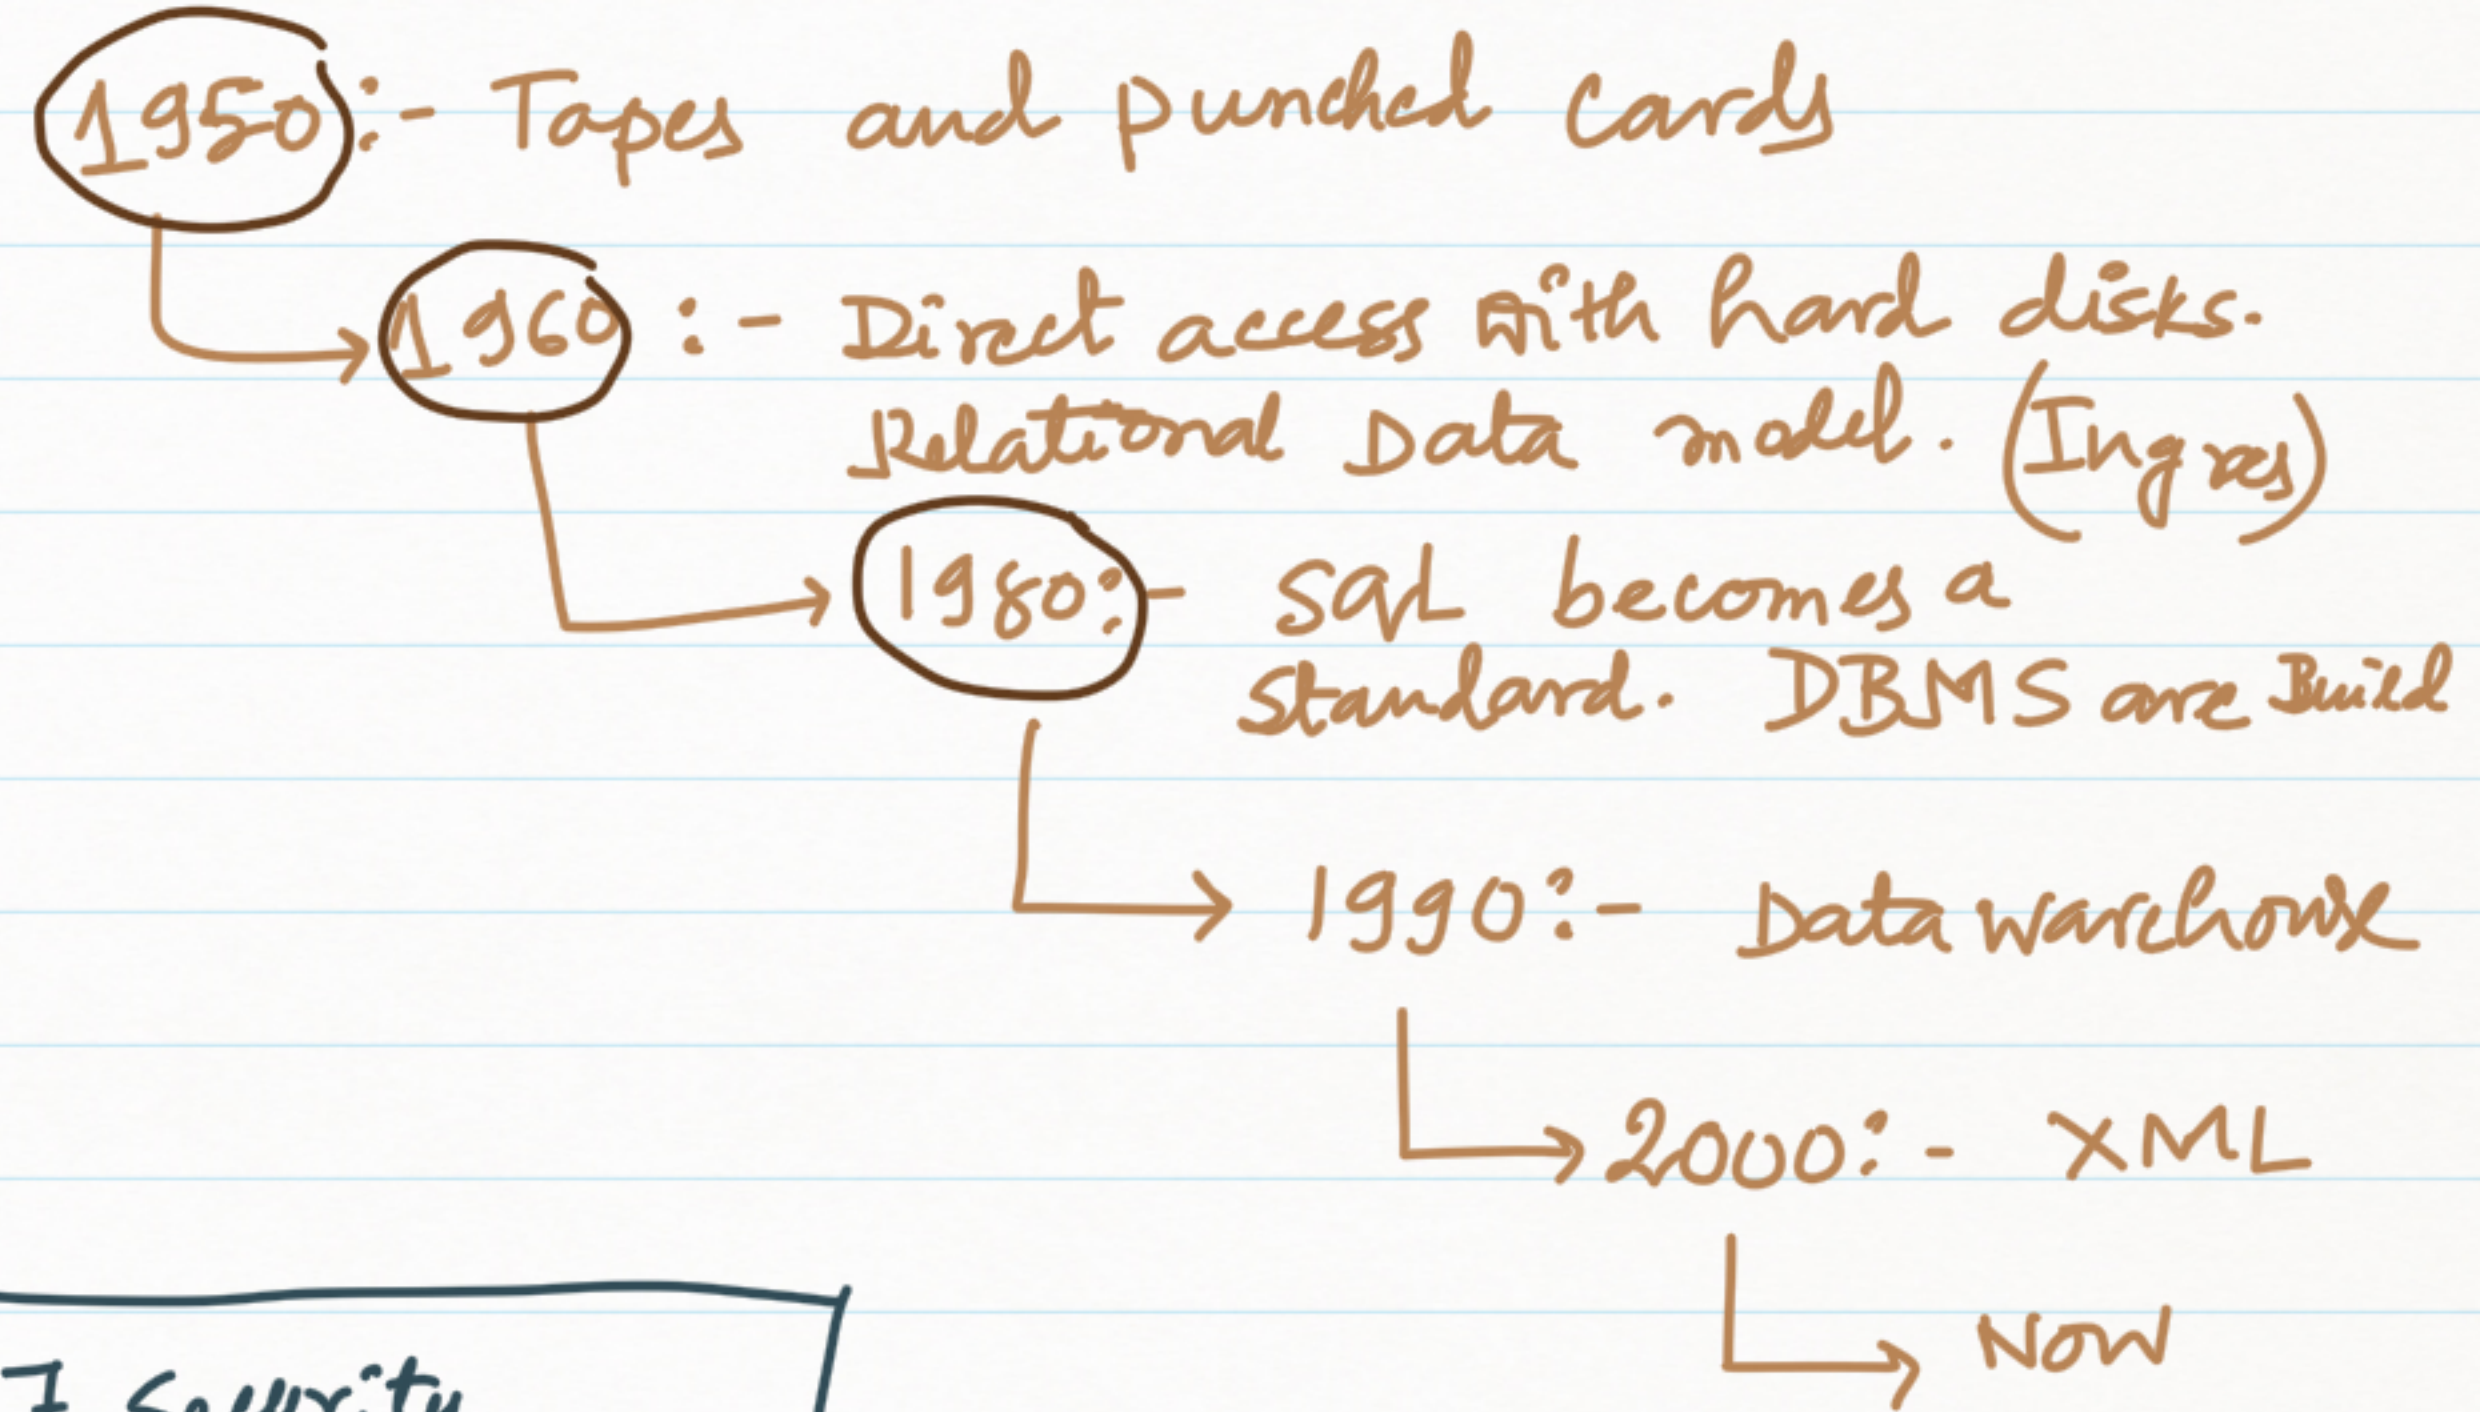 1950:- Tapes and punched cards
1960 :- Direct access with hard disks.
Relational Data model. (Ingres)
1980:- SQL becomes a
standard. DBMS are Build
1990:- Data warehouse
2000:- XML
NOW
7 Security